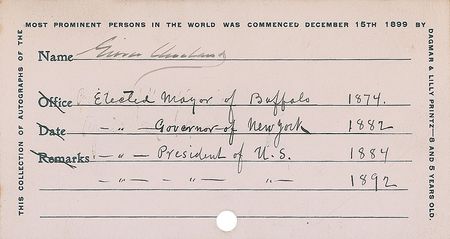 MOST PROMINENT PERSONS IN THE WORLD WAS COMMENCED DECEMBER 15TH 1899 BY
DAGMAR & LILLY PRINTZ—8 AND 5 YEARS OLD.
THIS COLLECTION OF AUTOGRAPHS OF THE
Name Grover Cleveland
Office Elected Mayor of Buffalo 1874.
Date —〃— Governor of New York 1882
Remarks —〃— President of U.S. 1884
—〃— —〃— —〃— 1892